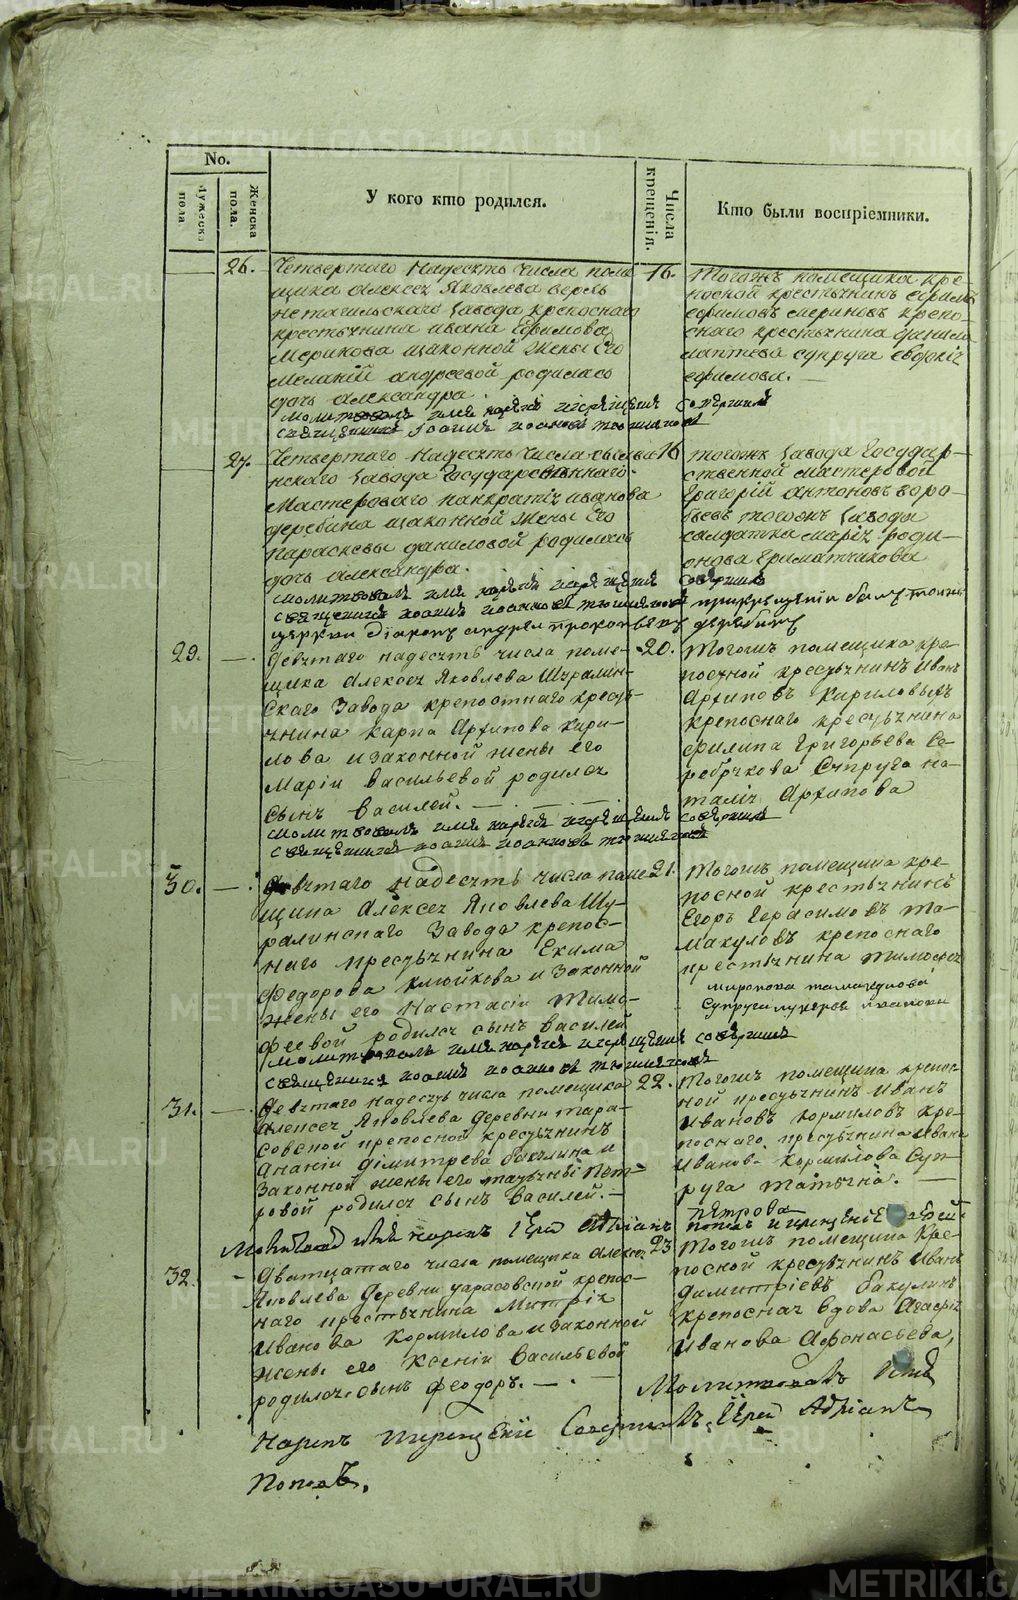 No.
Мужеска пола.
Женска пола.
У кого кто родился.
Числа крещенія.
Кто были воспріемники.
26.
Четвертаго надесять числа поме
щика Алексея Яковлева верхъ
нетагильскаго завода крепоснаго
крестьянина Ивана Ефимова
Мерикова изаконной жены его
Меланiи Андреевой родилась
дочь Александра.
молитвовалъ имя нарече и крещение совершилъ
священникъ Иоаннъ Иоанновъ
16.
Тогожъ помещика кре
посной крестьянинъ Ефимъ
Ефимовъ Мериновъ крепо-
снаго крестьянина Данила
Лаптева супруга
Ефимова.
27.
Четвертаго надесять числа
нскаго завода Государственнаго
Мастероваго Панкратiя Иванова
Дерябина изаконной жены его
Параскевы Даниловой родилась
дочь Александра.
молитвовалъ имя нарече и крещение совершилъ
священникъ Иоаннъ Иоанновъ при крещенiи былъ тоия
церкви дiаконъ Андрей Прокопьевъ Дерябинъ
16
Тогожъ завода Государ-
ственной мастеровой
Григорiй Антоновъ Воро-
бьевъ тогожъ завода
салдатка Марiя Роди-
онова
29.
Девятаго надесять числа поме-
щика Алексея Яковлева Шуралин-
скаго Завода крепостнаго кресть-
янина Карпа Архипова Кири-
лова изаконной жены его
Марiи Васильевой родился
сынъ Василей.
молитвовалъ имя нарече и крещение совершилъ
священникъ Иоаннъ Иоанновъ
20.
Тогожъ помещика кре-
посной крестьянинъ Иванъ
Архиповъ Кириловыхъ
крепоснаго крестьянина
Филипа Григорьева Се-
ребрякова Супруга На-
талiя Архипова
30.
Девятаго надесять числа поме
щика Алексея Яковлева Шу-
ралинскаго Завода крепос-
наго крестьянина Екима
Федорова Клюйкова изаконной
жены его Настасiи Тимо-
феевой родился сынъ Василей
молитвовалъ имя нарече и крещение совершилъ
священникъ Иоаннъ Иоанновъ
21.
Тогожъ помещика кре-
посной крестьянинъ
Егоръ Герасимовъ Та-
макуловъ крепоснаго
крестьянина Тимофея
Миронова Тамакулова
Супруга Лукерья Иванова
31.
Девятаго надесять числа помещика
Алексея Яковлева Деревни Тара-
совской крепосной крестьянинъ
Ананiи Димитрева Бакулина и
Законной жены его Татьяны Пет-
ровой родился сынъ Василей.
Молитвовалъ имя нарекъ Iерей Адрiанъ
Поповъ и крещенiе совершилъ
22.
Тогожъ помещика крепос-
ной крестьянинъ Иванъ
Ивановъ Кормиловъ кре-
поснаго крестьянина Ивана
Иванова Кормилова Суп-
руга Татьяна.
Петрова
32.
Дватцатаго числа помещика Алексея
Яковлева Деревни Тарасовской крепос-
наго крестьянина Митрiя
Иванова Кормилова изаконной
жены его Ксенiи Васильевой
родился сынъ Феодоръ.
23
Тогожъ помещика Кре-
посной крестьянинъ Иванъ
Димитрiевъ Бакулинъ
крепосная вдова Агафiя
Иванова Афонасьева,
Молитвовалъ Имя
Нарекъ и крещенiе Совершилъ Iерей Адрiанъ
Поповъ.
METRIKI.GASO-URAL.RU